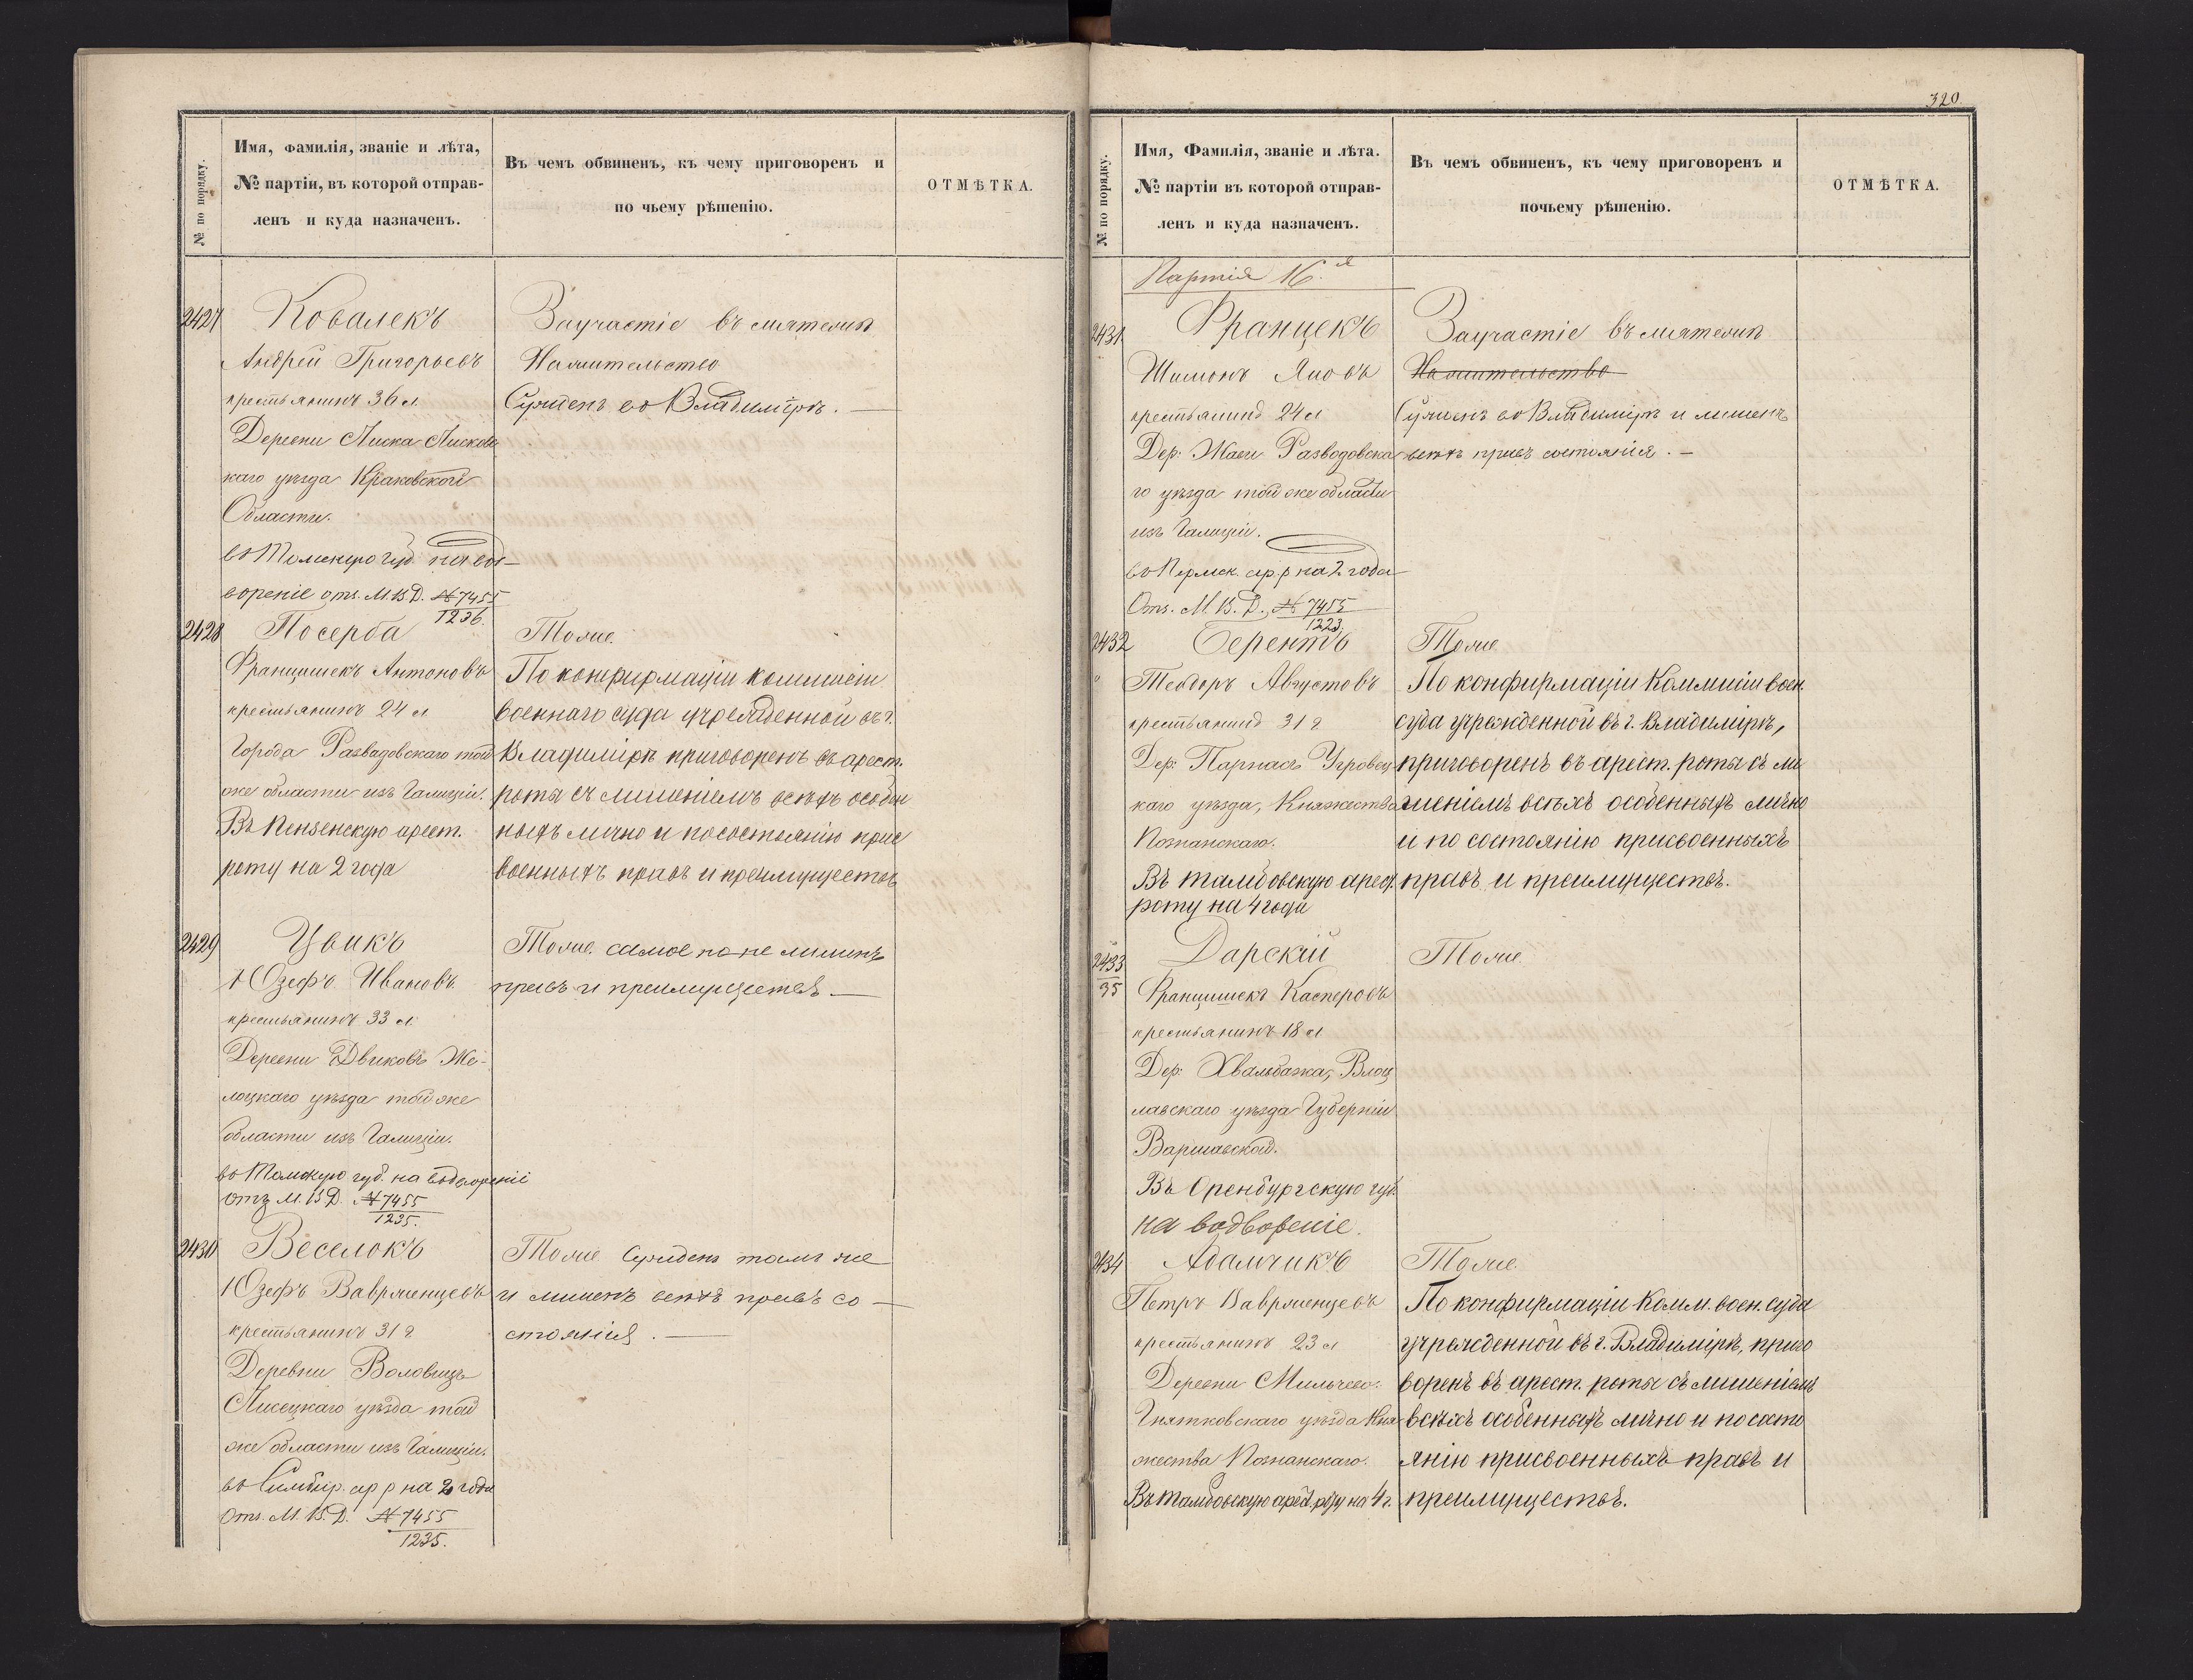 № по порядку.
Имя, фамилія, званіе и лѣта,
№ партіи, въ которой отправ-
ленъ и куда назначенъ.
Въ чемъ обвиненъ, къ чему приговоренъ и
по чьему рѣшенію.
ОТМѢТКА.
2427
Ковалекъ
Андрей Григорьевъ
крестьянинъ 36 л.
Деревни Лиска Лисков
каго уѣзда Краковской
Области.
въ Томскую губ. на вод-
вореніе отз. М.В.Д. № 7455
1236.
За участіе въ мятежѣ
На жительство
Сужденъ во Владимірѣ.
2428
Посерба
Францишекъ Антоновъ
крестьянинъ 24 л
Города Развадовскаго той
же области изъ Галиціи.
Въ Пензенскую арест.
роту на 2 года
Тоже.
По конфирмаціи коммисіи
военнаго суда учрежденной въ г.
Владимірѣ приговоренъ въ арест.
роты съ лишеніемъ всѣхъ особен
ныхъ лично и по состоянію прис
военныхъ правъ и преимуществъ
2429
Цвикъ
Юзефъ Ивановъ
крестьянинъ 33 л.
Деревни Двиковъ Же-
лоцкаго уѣзда той же
области изъ Галиціи.
въ Томскую губ. на водвореніе
отз М.В.Д. № 7455
1235.
Тоже. самое но не лишенъ
правъ и преимуществъ
2430
Веселокъ
Юзефъ Вавржнецевъ
крестьянинъ 31 г
Деревни Воловицъ
Лисецкаго уѣзда той
же области изъ Галиціи.
въ Симбир. ар р на 2 года
Отз. М.В.Д. № 7455
1235.
Тоже Сужденъ тамъ же
и лишенъ всѣхъ правъ со
стоянія.
320
№ по порядку.
Имя, Фамилія, званіе и лѣта.
№ партіи въ которой отправ-
ленъ и куда назначенъ.
Въ чемъ обвиненъ, къ чему приговоренъ и
почьему рѣшенію.
ОТМѢТКА.
Партія 16.я
2431
Францекъ
Шимонъ Яновъ
крестьянинъ 24 л
Дер: Жаги Развадовска
го уѣзда той же области
изъ Галиціи.
въ Пермск. ар. р на 2 года
Отз. М.В.Д. № 7455
1223.
За участіе въ мятежѣ
На жительство
Сужденъ во Владимірѣ и лишенъ
всѣхъ правъ состоянія.
2432
Берентъ
Теодоръ Августовъ
крестьянинъ 31 г
Дер: Парнасъ Угровец
каго уѣзда, Княжества
Познанскаго.
Въ тамбовскую арест.
роту на 4 года
Тоже
По конфирмаціи Коммисіи воен.
суда учрежденной въ г. Владимірѣ,
приговоренъ въ арест. роты съ ли
шеніемъ всѣхъ особенныхъ лично
и по состоянію присвоенныхъ
правъ и преимуществъ.
2433
35
Дарскій
Францишекъ Касперовъ
крестьянинъ 18 л
Дер: Хвальбажа, Влоц
лавскаго уѣзда Губерніи
Варшавской.
Въ Оренбургскую губ.
на водвореніе.
Тоже
2434
Адамчикъ
Петръ Вавржнецевъ
крестьянинъ 23 л
Деревни Мильчево.
Гнятковскаго уѣзда Кня
жества Познанскаго.
Въ Тамбовскую арест. роту на 4 г.
Тоже.
По конфирмаціи Комм. воен. суда
учрежденной въ г. Владимірѣ, приго
воренъ въ арест. роты съ лишеніемъ
всѣхъ особенныхъ лично и по состо
янію присвоенныхъ правъ и
преимуществъ.